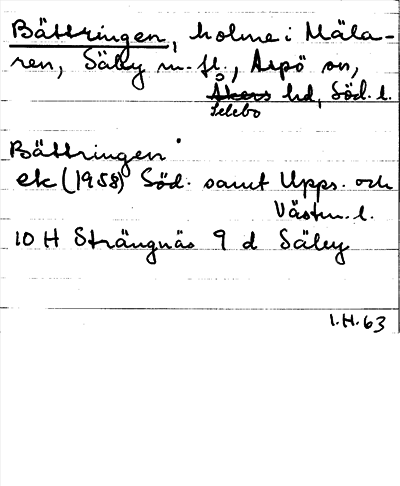 Bättringen, holme i Mäla-
ren, Säby m. fl., Aspö sn,
Åkers hd, Söd. l.
Selebo
Bättringen
ek (1958) Söd. samt Upps. och
Västm. l.
10 H Strängnäs 9 d Säby
I.H. 63